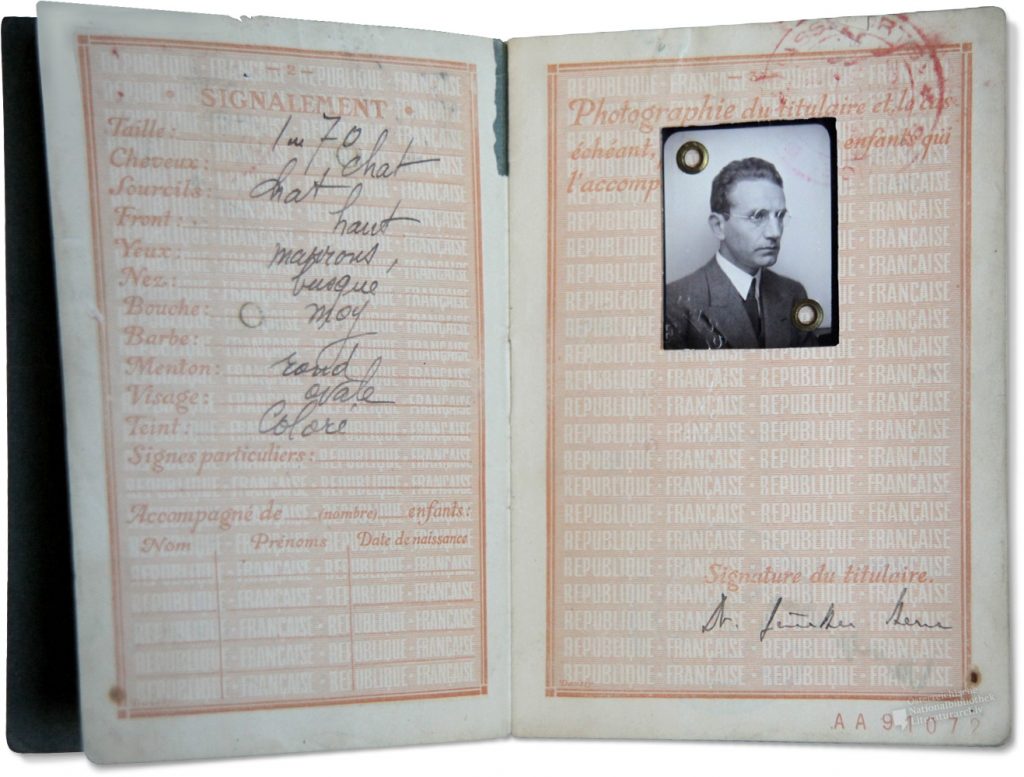 — 2 —
SIGNALEMENT
Taille : 1 m 70
Cheveux : chat
Sourcils : chat
Front : haut
Yeux : marrons,
Nez : busqué
Bouche : moy
Barbe :
Menton : rond
Visage : ovale
Teint : Coloré
Signes particuliers :
Accompagné de (nombre) enfants :
Nom Prénoms Date de naissance
— 3 —
Photographie du titulaire et, le cas
échéant, enfants qui
l'accomp
REPUBLIQUE - FRANÇAISE - REPUBLIQUE - FRANÇAISE
Signature du titulaire.
Dr. Günther
Österreichische
Nationalbibliothek
Literaturarchiv
AA91072